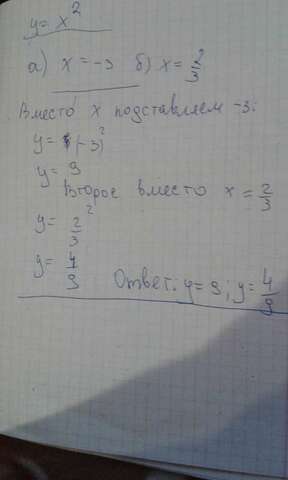 y = x²
а) x = -3 б) x = 2/3
Вместо x подставляем -3:
y = (-3)²
y = 9
Второе вместо x = 2/3
y = 2/3²
y = 4/9
Ответ: y = 9; y = 4/9